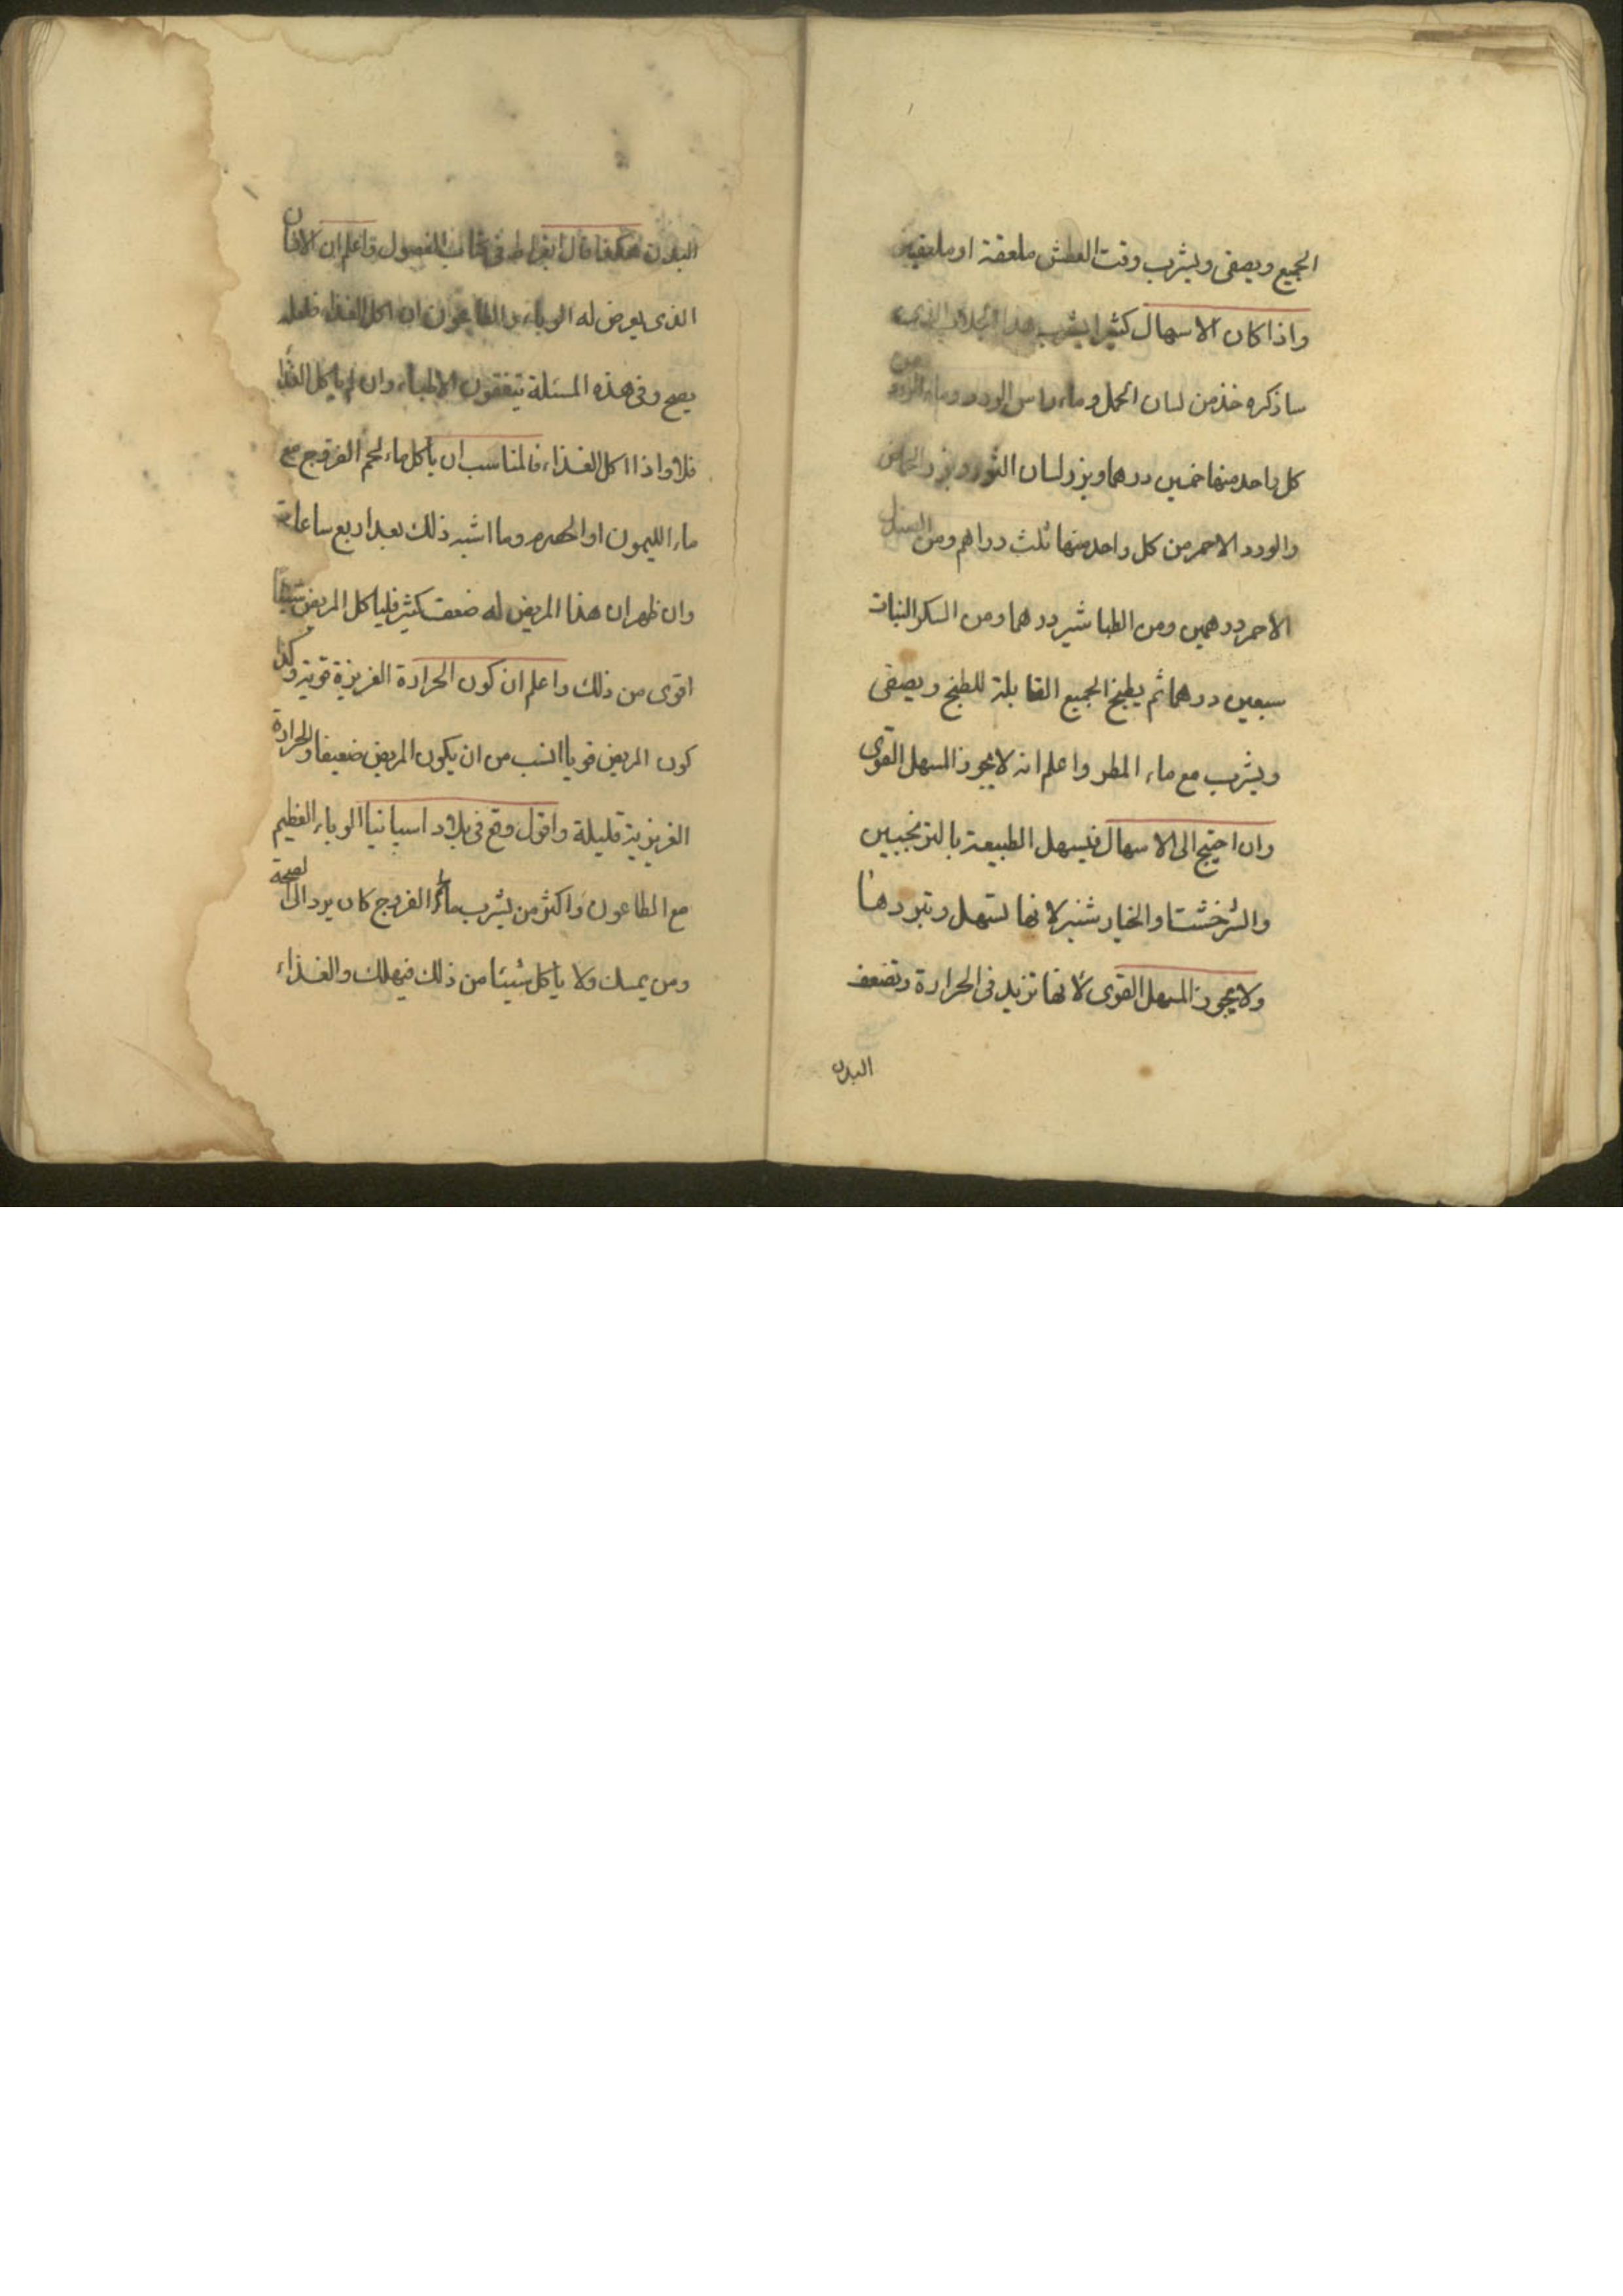 الجميع ويصفى ويشرب وقت العطش ملعقة او ملعقتين
واذا كان الاسهال كثيرا يشرب هذا الجلاب الذى
ساذكره خذ من لسان الحمل وماء راس الورد وماء من
كل واحد منها خمسين درهما وبزر لسان الثور وبزر الحماض
والورد الاحمر من كل واحد منها ثلث دراهم ومن الصندل
الاحمر درهمين ومن الطباشير درهما ومن السكر النبات
سبعين درهما ثم يطبخ الجميع القابلة للطبخ ويصفى
ويشرب مع ماء المطر واعلم انه لا يجوز المسهل القوى
وان احتيج الى الاسهال فيسهل الطبيعة بالترنجبين
والشرخشت والخيار شنبر لانها تسهل وتبردها
ولا يجوز المسهل القوى لانها تزيد فى الحرارة وتضعف
البدن
البدن هكذا قال ابقراط فى كتاب الفصول واعلم ان الانسان
الذى يعرض له الوباء والطاعون ان اكل الغذاء فلعله
يصح وفى هذه المسئلة يتفقون الاطباء وان لم ياكل الغذا
فلا واذا اكل الغذاء فالمناسب ان ياكل ماء لحم الفروج مع
ماء الليمون او الحصرم وما اشبه ذلك بعد اربع ساعات
وان ظهر ان هذا المريض له ضعف كثير فلياكل المريض شيئا
اقوى من ذلك واعلم ان كون الحرارة الغريزة قوية وكذا
كون المريض قويا انسب من ان يكون المريض ضعيفا والحرارة
الغريزية قليلة واقول وقع فى بلاد اسپانيا الوباء العظيم
مع الطاعون واكثر من يشرب ماء الفروج كان يرد الى الصحة
ومن يمسك ولا ياكل شيئا من ذلك فيهلك والغذاء